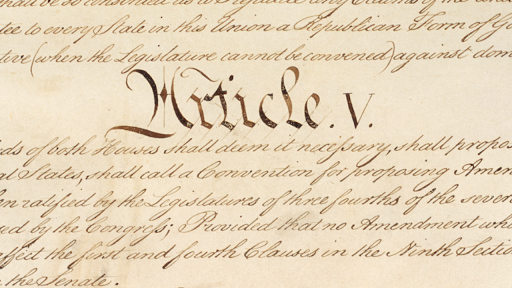 shall be so construed as to Prejudice any Claims of the
tee to every State in this Union a Republican Form of Go
tive (when the Legislature cannot be convened) against dom
Article. V.
ds of both Houses shall deem it necessary, shall propos
al States, shall call a Convention for proposing Amen
en ratified by the Legislatures of three fourths of the seve
ed by the Congress; Provided that no Amendment whi
ffect the first and fourth Clauses in the Ninth Sectio
the Senate.